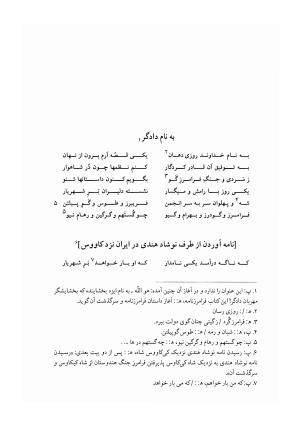 به نام دادگر۱
به نام خداوند روزی دهان۲ یکی قصّه آرم برون از نهان
به توفیق آن قادر کردگار کنم نظمها چون دُر شاهوار
ز شردی و جنگ فرامرز گو۳ بگویم کنون داستانها شنو
یکی روز با رامش و میگسار نشسته دلیران بَرِ شهریار
شه۴ و پهلوان سر به سر انجمن فریبرز و طوس و گیو پیلتن ۵
فرامرز و گودرز و بهرام و گیو چو گستهم و گرگین و رهام نیو۵
[نامه آوردن از طرف نوشاد هندی در ایران نزد کاووس]۶
که ناگه درآمد یکی نامدار که او بار خواهد۷ بَرِ شهریار
۱. پ: این عنوان را ندارد و در آغاز آن چنین آمده: هو الله ـ به نام ایزد بخشاینده که بخشایشگر
مهربان دادگر! این کتاب فرامرزنامه، ه‍: آغاز داستان فرامرزنامه و سرگذشت آن گوید.
۲. ه‍: /: روزی رسان
۳. ه‍: فرامرز کُرد / زگیتی چنان گوی دولت ببرد.
۴. پ، ه‍: شبان و رمه / ه‍: طوس گوپیلتن.
۵. پ: چو گستهم و رهام و گرگین نیو، ه‍: چه گستهم در ها ....
۶. پ: رسیدن نامه نوشاد هندی نزدیک کی کاووس شاه، ه‍: پس از دو بیت بعدی: برسیدن
نامه نوشاد هندی به نزدیک شاه کی کاوس پذیرفتن فرامرز جنگ هندوستان از شاه کیکاوس و
سرگذشت آن.
۷. پ: که من بار خواهم، ه‍: /که می بار خواهد